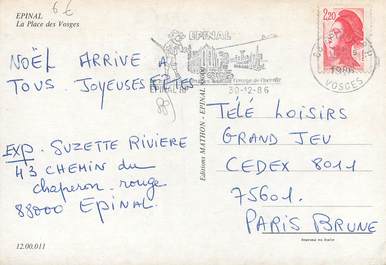 6€
EPINAL
La Place des Vosges
NOËL ARRIVE A
TOUS. JOYEUSES FÊTES
EXP. SUZETTE RIVIERE
43 CHEMIN du
chaperon rouge
88000 EPINAL.
12.00.011
EPINAL
30-12-86
2,20
1986
VOSGES
Editions MATHON - EPINAL
TÉLÉ LOISIRS
GRAND JEU
CEDEX 8011
75601.
PARIS BRUNE